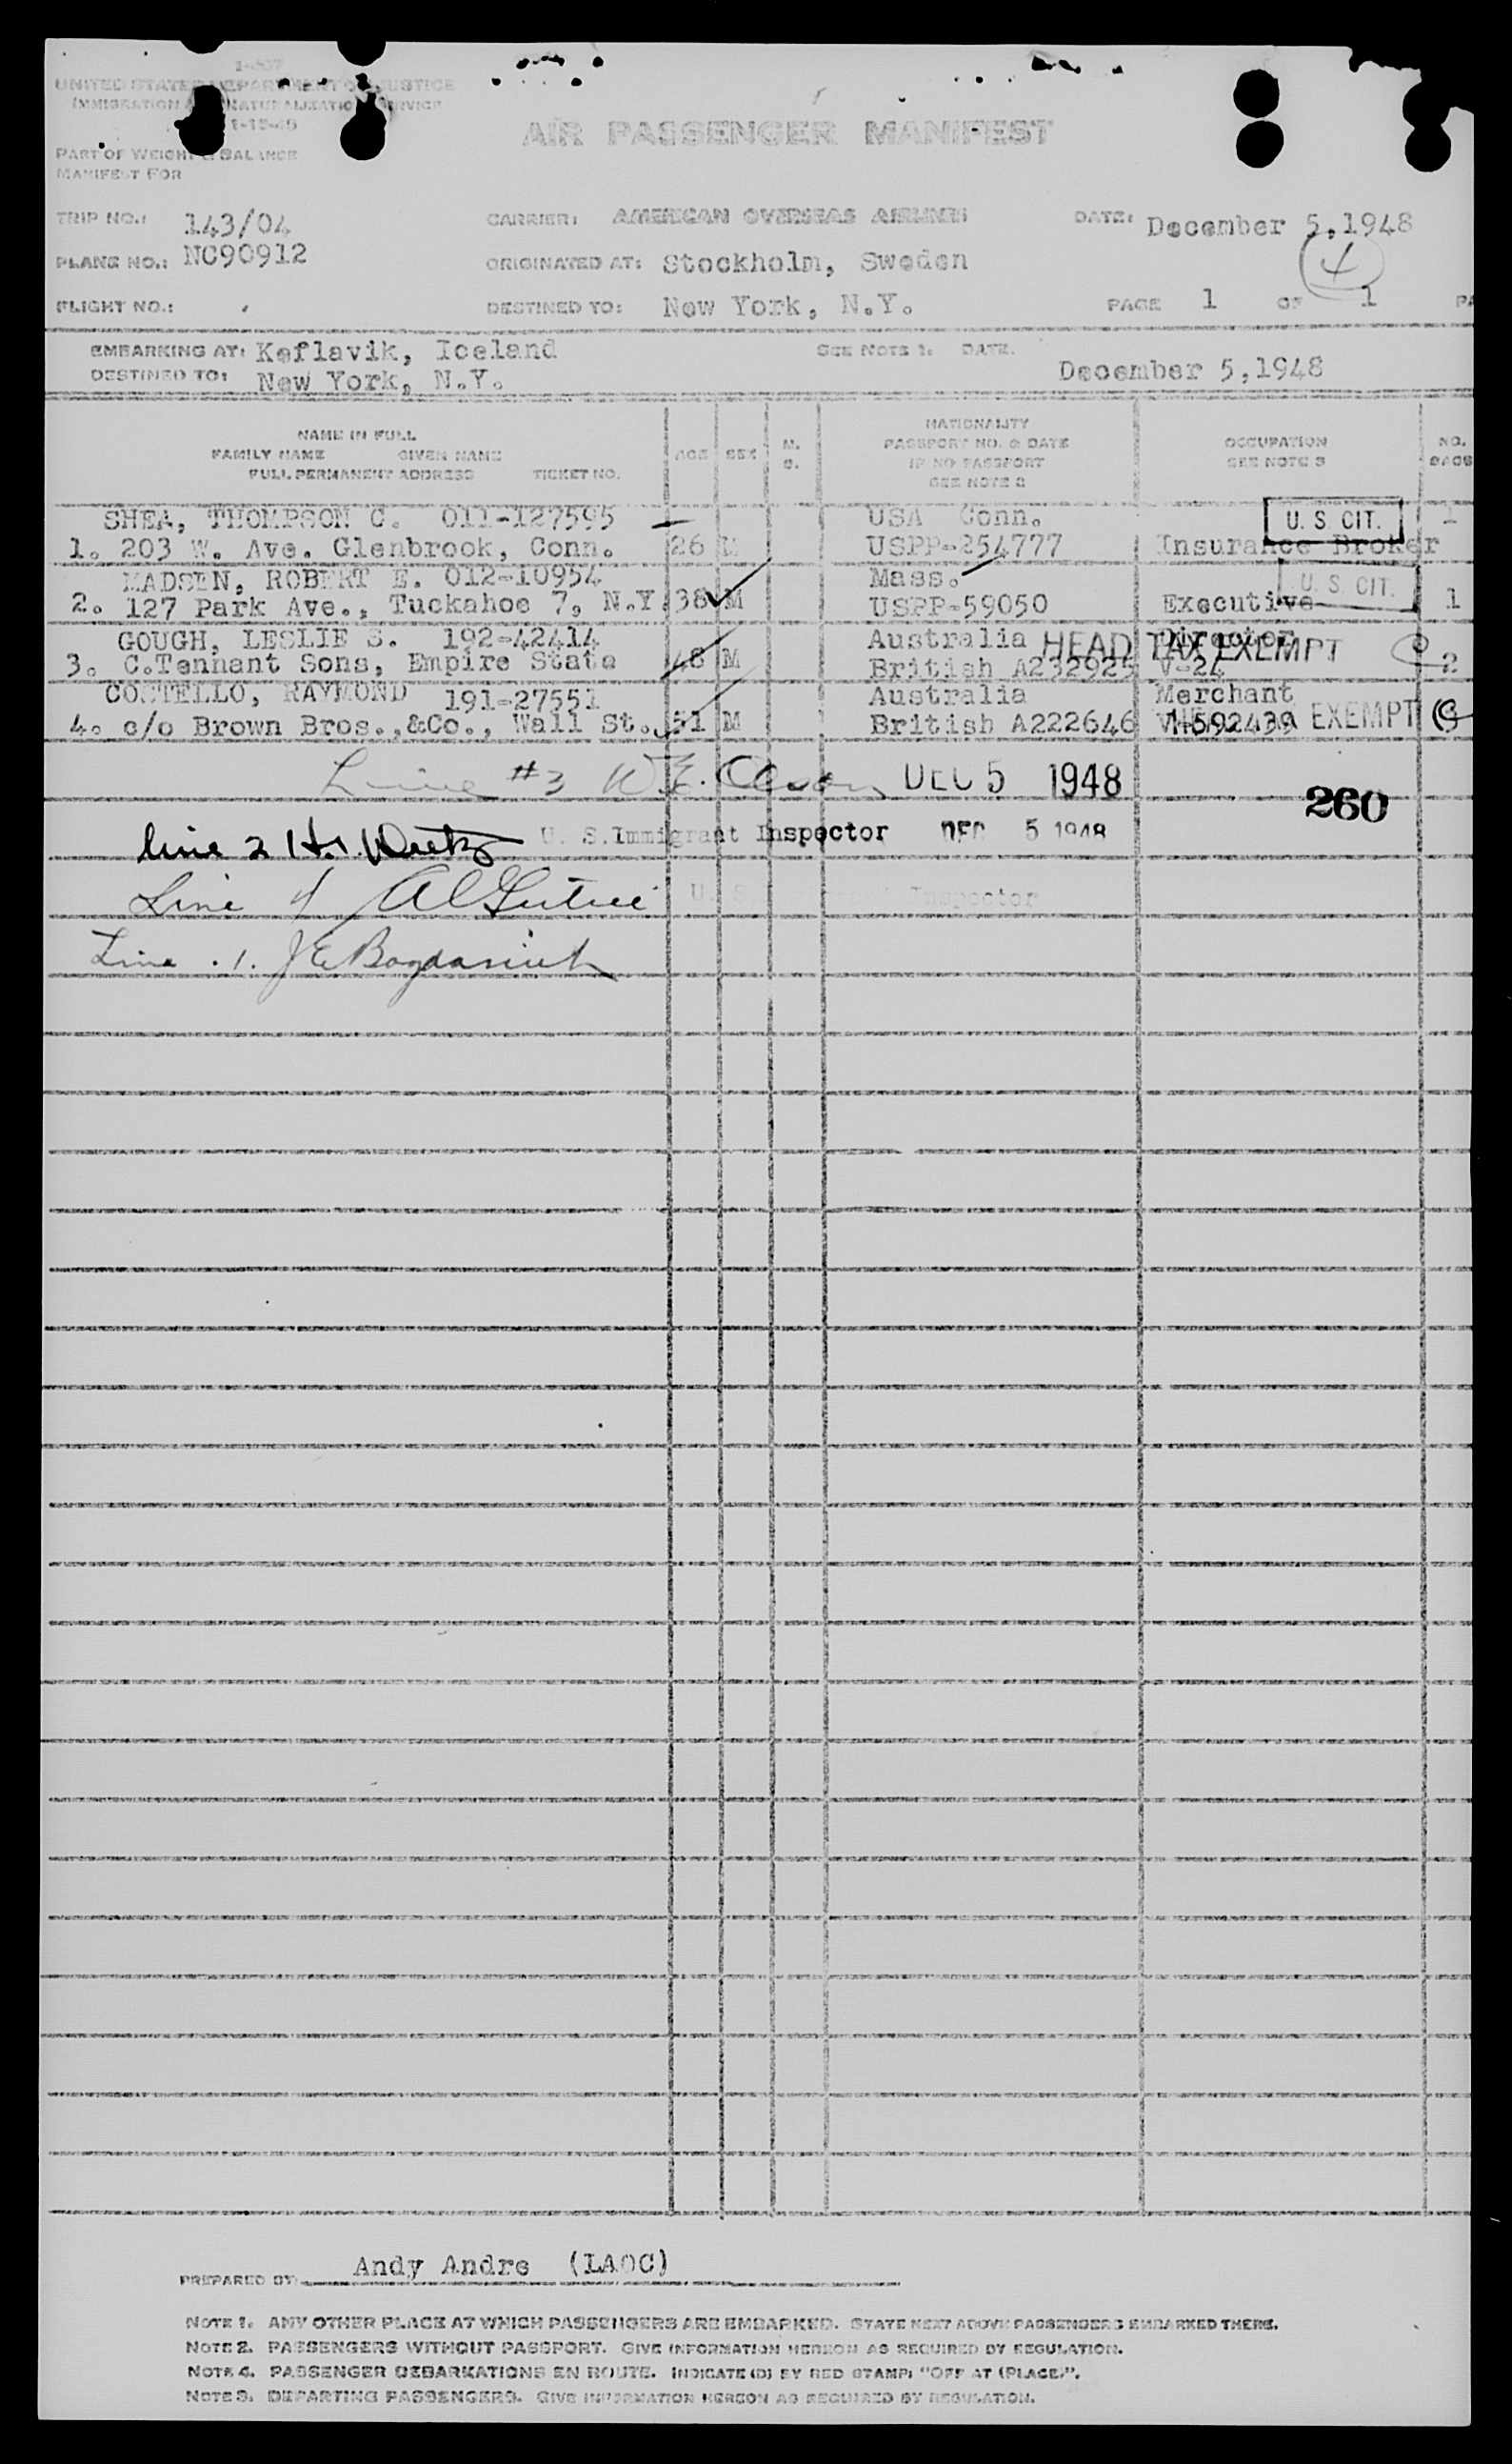 I-507
UNITED STATES DEPARTMENT OF JUSTICE
IMMIGRATION AND NATURALIZATION SERVICE
1-15-45
AIR PASSENGER MANIFEST
PART OF WEIGHT & BALANCE
MANIFEST FOR
TRIP NO.: 143/04 CARRIER: AMERICAN OVERSEAS AIRLINES DATE: December 5,1948
PLANE NO.: NC90912 ORIGINATED AT: Stockholm, Sweden 4
FLIGHT NO.: DESTINED TO: New York, N.Y. PAGE 1 OF 1 PA
EMBARKING AT: Keflavik, Iceland SEE NOTE 1. DATE.
DESTINED TO: New York, N.Y. December 5,1948
NAME IN FULL
FAMILY NAME GIVEN NAME
FULL PERMANENT ADDRESS TICKET NO.
AGE SEX M. S.
NATIONALITY
PASSPORT NO. & DATE
IF NO PASSPORT
SEE NOTE 2
OCCUPATION
SEE NOTE 3
NO.
BAGS
SHEA, THOMPSON C. 011-127595 USA Conn. U. S. CIT. 1
1. 203 W. Ave. Glenbrook, Conn. 26 M USPP-254777 Insurance Broker
MADSEN, ROBERT E. 012-10954 Mass. U. S. CIT.
2. 127 Park Ave., Tuckahoe 7, N.Y. 38 M USPP-59050 Executive 1
GOUGH, LESLIE S. 192-42414 Australia Director HEAD TAX EXEMPT
3. C.Tennant Sons, Empire State 48 M British A232925 V-24 2
COSTELLO, RAYMOND 191-27551 Australia Merchant
4. c/o Brown Bros.,&Co., Wall St. 51 M British A222646 V-592439 EXEMPT
Line #3 W.E. Olson DEC 5 1948
260
line 2 H.I. U. S. Immigrant Inspector DEC 5 1948
Line 4 U. S. Inspector
Line .1. J E Bogdanich
PREPARED BY: Andy Andre (IAOC)
NOTE 1. ANY OTHER PLACE AT WHICH PASSENGERS ARE EMBARKED. STATE NEXT ABOVE PASSENGERS EMBARKED THERE.
NOTE 2. PASSENGERS WITHOUT PASSPORT. GIVE INFORMATION HEREON AS REQUIRED BY REGULATION.
NOTE 4. PASSENGER DEBARKATIONS EN ROUTE. INDICATE (D) BY RED STAMP: "OFF AT (PLACE)".
NOTE 3. DEPARTING PASSENGERS. GIVE INFORMATION HEREON AS REQUIRED BY REGULATION.